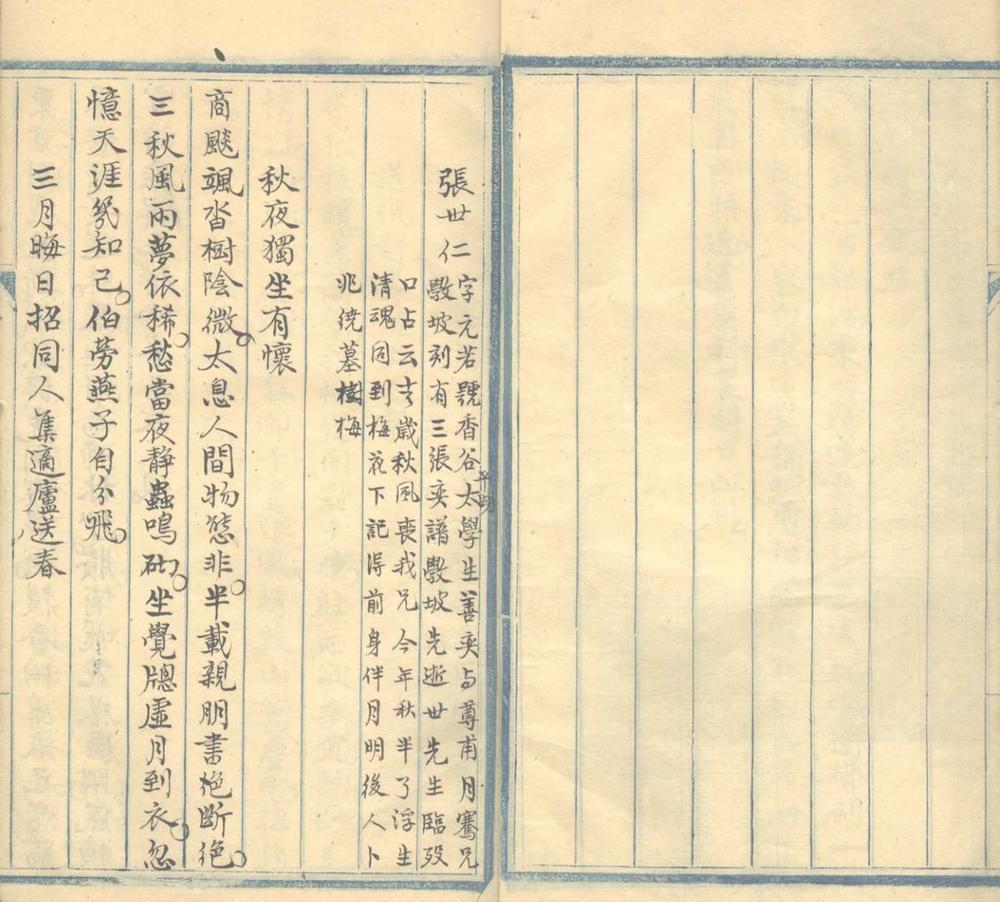 張世仁
字元若號香谷太學生善奕与尊甫月騫兄
斆坡刻有三張奕譜斆坡先逝世先生臨歿
口占云去歲秋風喪我兄今年秋半了浮生
清魂同到梅花下記得前身伴月明後人卜
兆繞墓樹梅
秋夜獨坐有懷
商飈颯沓樹陰微太息人間物態非半載親朋書絶斷絶
三秋風雨夢依稀愁當夜静蟲鳴砌坐覺牕虛月到衣忽
憶天涯幾知己伯勞燕子自分飛
三月晦日招同人集適廬送春